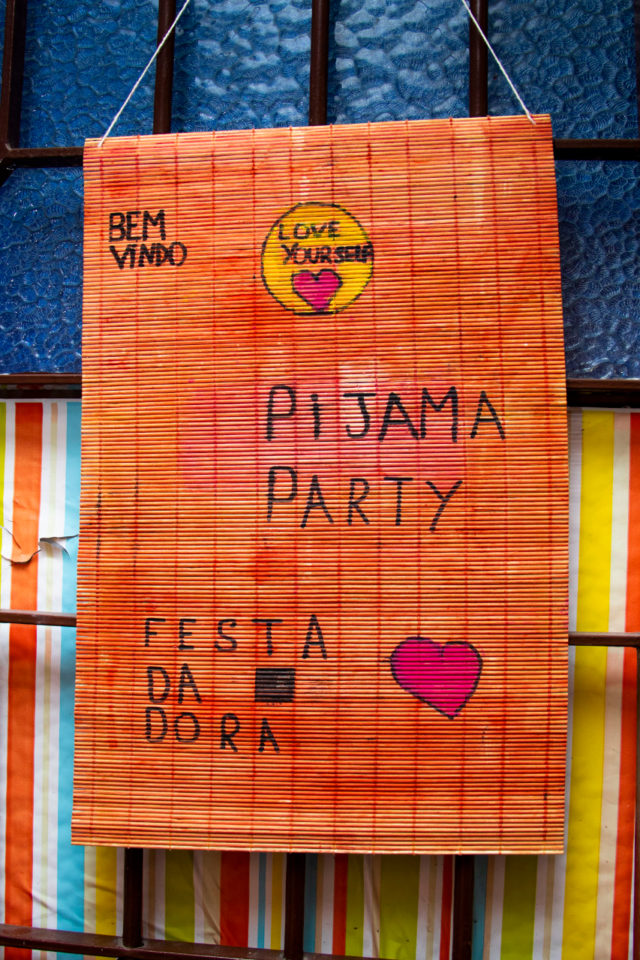 BEM
VINDO
LOVE
YOURSELF
PIJAMA
PARTY
FESTA
DA
DORA